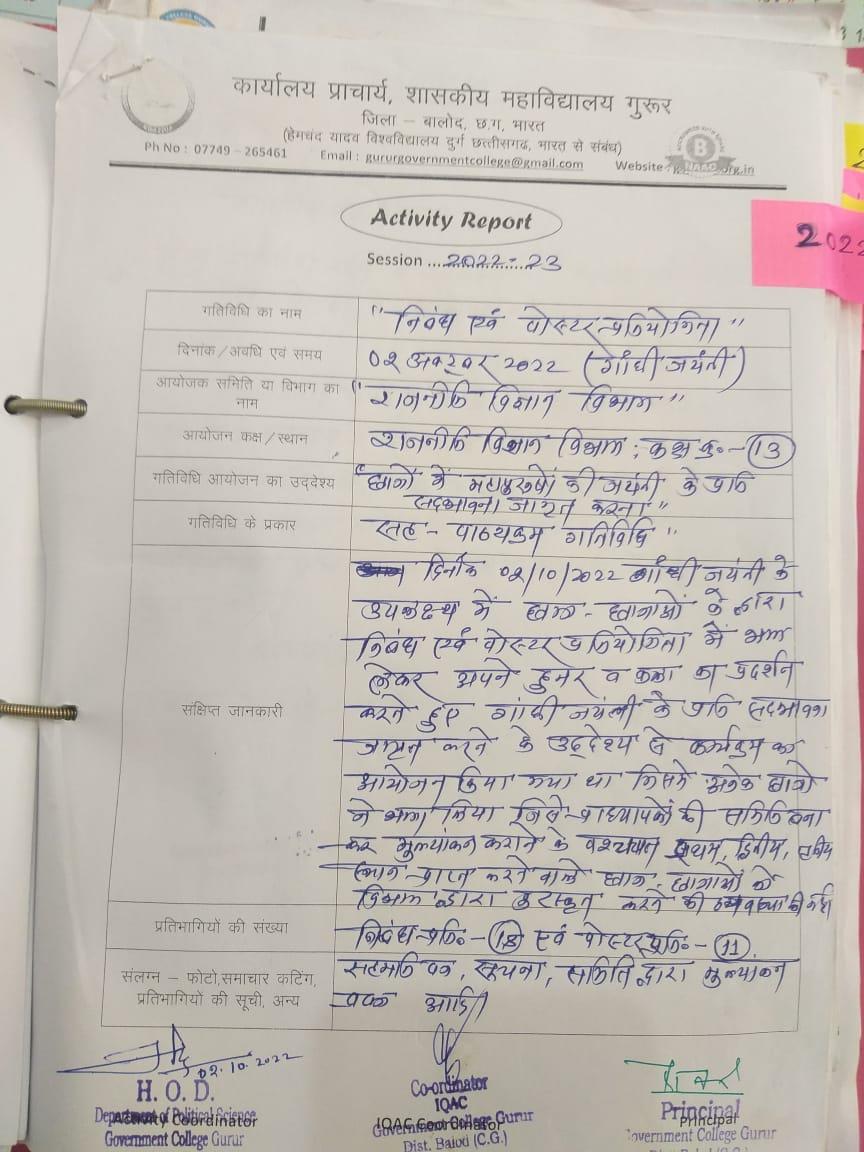 कार्यालय प्राचार्य, शासकीय महाविद्यालय गुरूर
जिला – बालोद, छ.ग, भारत
(हेमचंद यादव विश्वविद्यालय दुर्ग छत्तीसगढ, भारत से संबंध)
Ph No : 07749 – 265461 Email : gururgovernmentcollege@gmail.com Website
Activity Report
Session ...2022-23
2022
गतिविधि का नाम "निबंध एवं पोस्टर प्रतियोगिता"
दिनांक/अवधि एवं समय 02 अक्टूबर 2022 (गांधी जयंती)
आयोजक समिति या विभाग का नाम "राजनीति विज्ञान विभाग"
आयोजन कक्ष/स्थान राजनीति विज्ञान विभाग, कक्ष क्रं.-13
गतिविधि आयोजन का उददेश्य "छात्रों में महापुरुषों की जयंती के प्रति
सदभावना जागृत करना"
गतिविधि के प्रकार सह-पाठ्यक्रम गतिविधि"
संक्षिप्त जानकारी दिनाँक 02/10/2022 गांधी जयंती के
उपलक्ष्य में छात्र-छात्राओं के द्वारा
निबंध एवं पोस्टर प्रतियोगिता में भाग
लेकर अपने हुनर व कला का प्रदर्शन
करते हुए गांधी जयंती के प्रति सदभावना
जागृत करने के उद्देश्य से कार्यक्रम का
आयोजन किया गया था जिसमें अनेक छात्रो
ने भाग लिया जिसे प्राध्यापकों की समिति बना
कर मुल्यांकन कराने के पश्चात प्रथम, द्वितीय, तृतीय
स्थान प्राप्त करने वाले छात्र-छात्राओं को
विभाग द्वारा पुरस्कृत करने की व्यवस्था की गई
प्रतिभागियों की संख्या निबंध प्रति०-(18) एवं पोस्टर प्रति०-(11)
संलग्न – फोटो,समाचार कटिंग, सहमति पत्र, सूचना, समिति द्वारा मुल्यांकन
प्रतिभागियों की सूची, अन्य पत्रक आदि
02.10.2022
H. O. D.
Department of Political Science
Activity Coordinator
Government College Gurur
Co-ordinator
IQAC
IQAC Coordinator
Government College Gurur
Dist. Balod (C.G.)
Principal
Principal
Government College Gurur